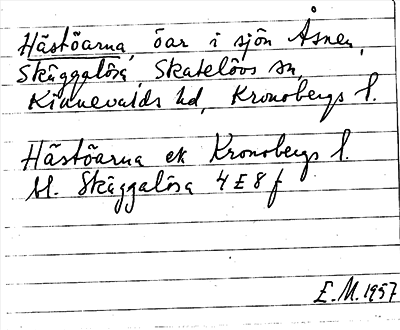 Hästöarna, öar i sjön Åsnen,
Skäggalösa, Skatelövs sn,
Kinnevalds hd, Kronobergs l.
Hästöarna ek Kronobergs l.
bl. Skäggalösa 4 E 8 f
E.M. 1957